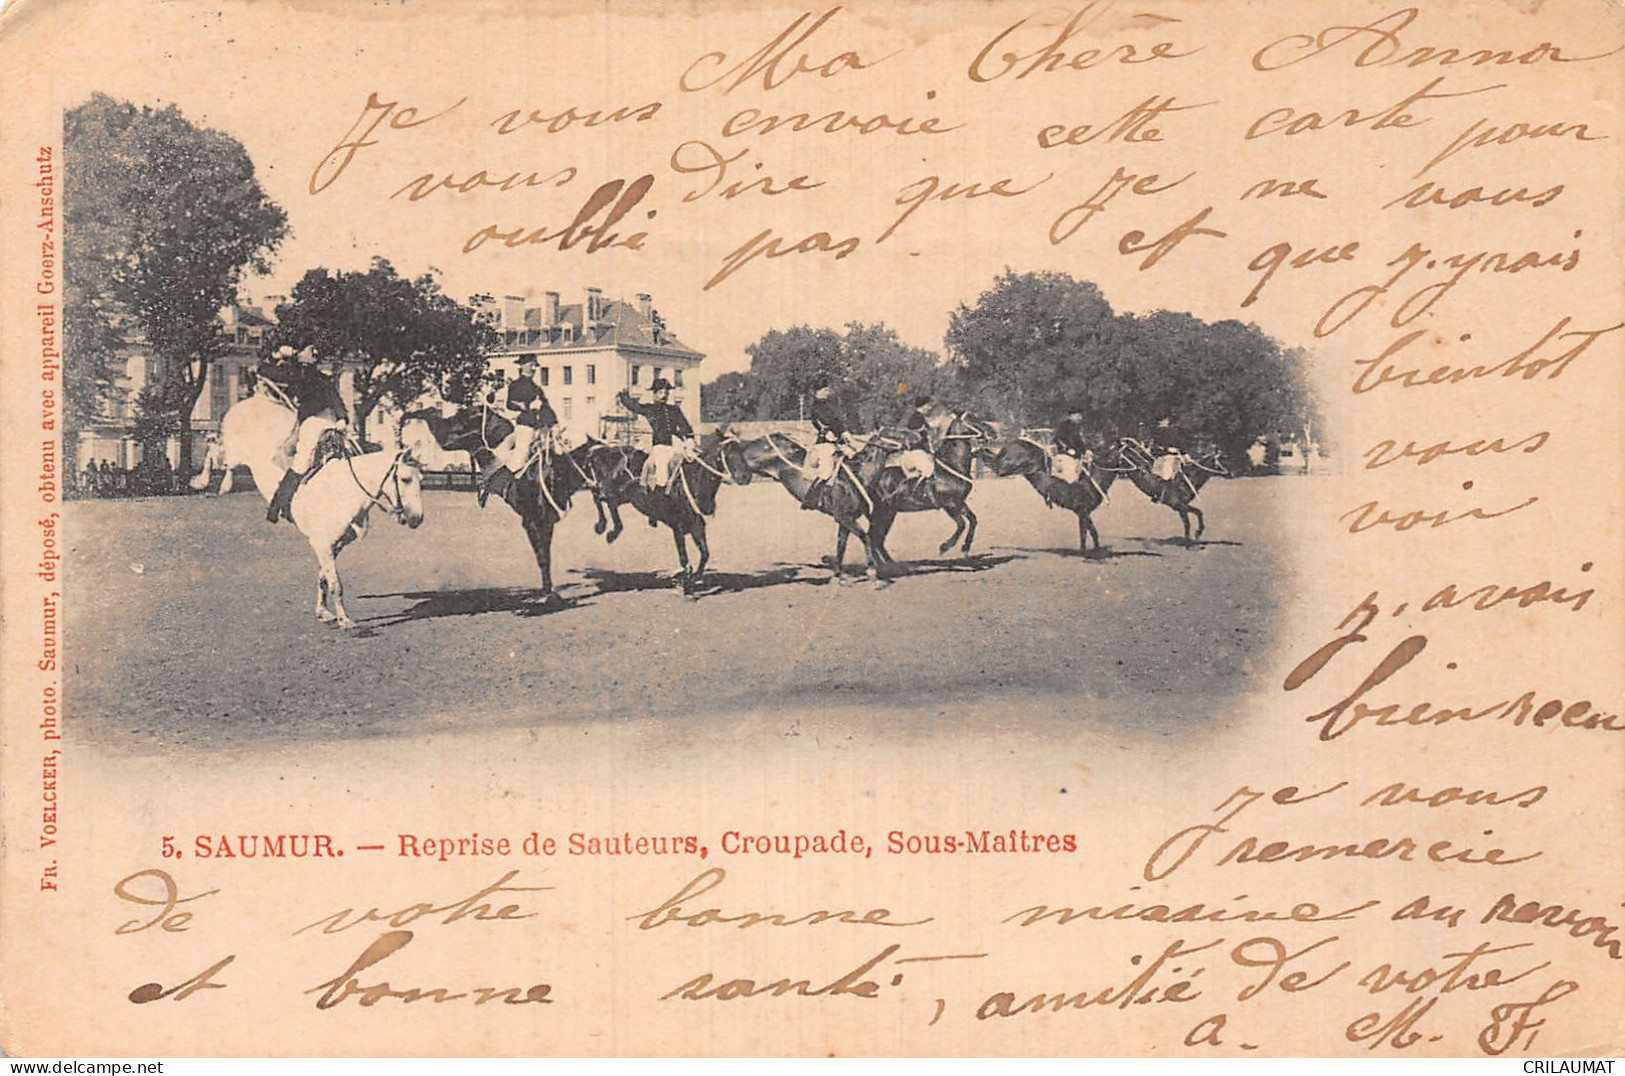 Ma Chère Anna
Je vous envoie cette carte pour
vous dire que je ne vous
oublié pas. et que j.yrais
bientot
vous
voir
j'avais
bien reçu
Je vous
remercie
de votre bonne missive au revoir
et bonne santé, amitié de votre
a. M. F.
5. SAUMUR. — Reprise de Sauteurs, Croupade, Sous-Maîtres
FR. VOELCKER, photo. Saumur, déposé, obtenu avec appareil Goerz-Anschutz
www.delcampe.net
CRILAUMAT